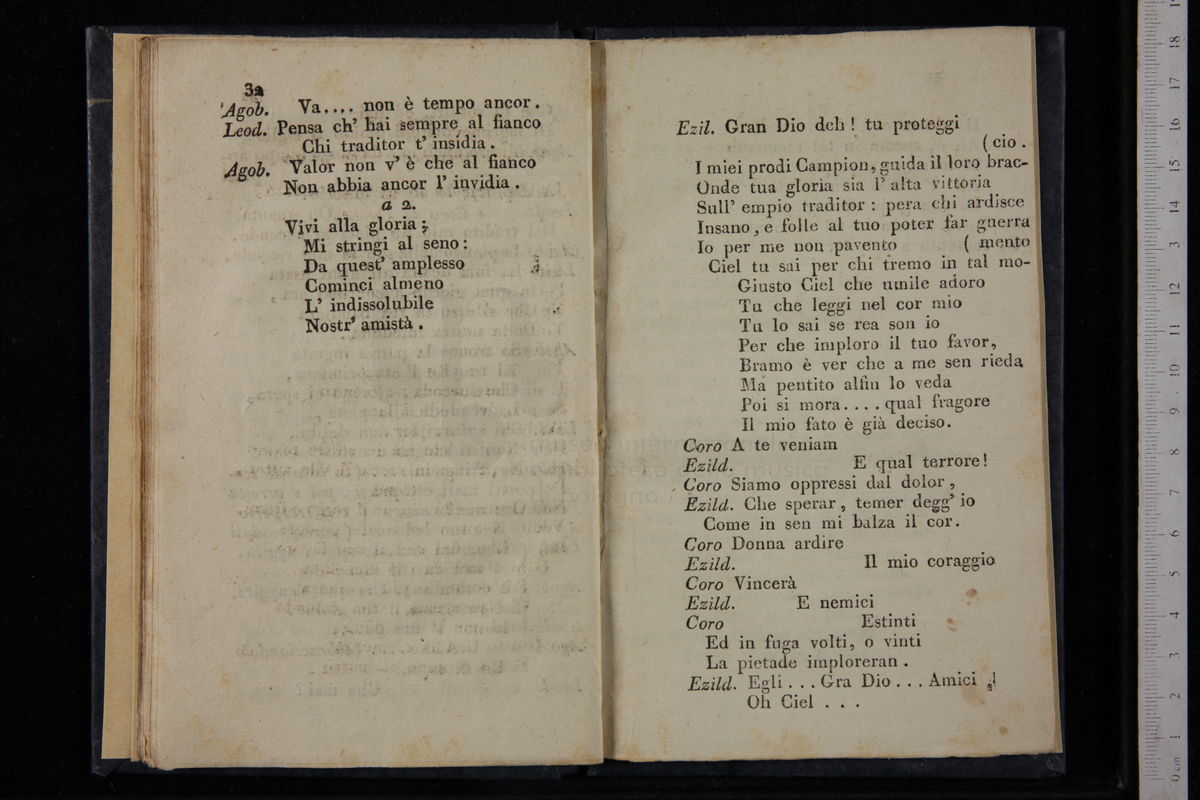 32
Agob. Va.... non è tempo ancor.
Leod. Pensa ch' hai sempre al fianco
Chi traditor t' insidia.
Agob. Valor non v' è che al fianco
Non abbia ancor l' invidia.
a 2.
Vivi alla gloria;
Mi stringi al seno:
Da quest' amplesso
Cominci almeno
L' indissolubile
Nostr' amistà.
Ezil. Gran Dio deh! tu proteggi
( cio.
I miei prodi Campion, guida il loro brac-
Onde tua gloria sia l' alta vittoria
Sull' empio traditor : pera chi ardisce
Insano, e folle al tuo poter far guerra
Io per me non pavento ( mento
Ciel tu sai per chi tremo in tal mo-
Giusto Ciel che umile adoro
Tu che leggi nel cor mio
Tu lo sai se rea son io
Per che imploro il tuo favor,
Bramo è ver che a me sen rieda
Ma pentito alfin lo veda
Poi si mora.... qual fragore
Il mio fato è già deciso.
Coro A te veniam
Ezild. E qual terrore!
Coro Siamo oppressi dal dolor,
Ezild. Che sperar, temer degg' io
Come in sen mi balza il cor.
Coro Donna ardire
Ezild. Il mio coraggio
Coro Vincerà
Ezild. E nemici
Coro Estinti
Ed in fuga volti, o vinti
La pietade imploreran.
Ezild. Egli... Gra Dio... Amici!
Oh Ciel...